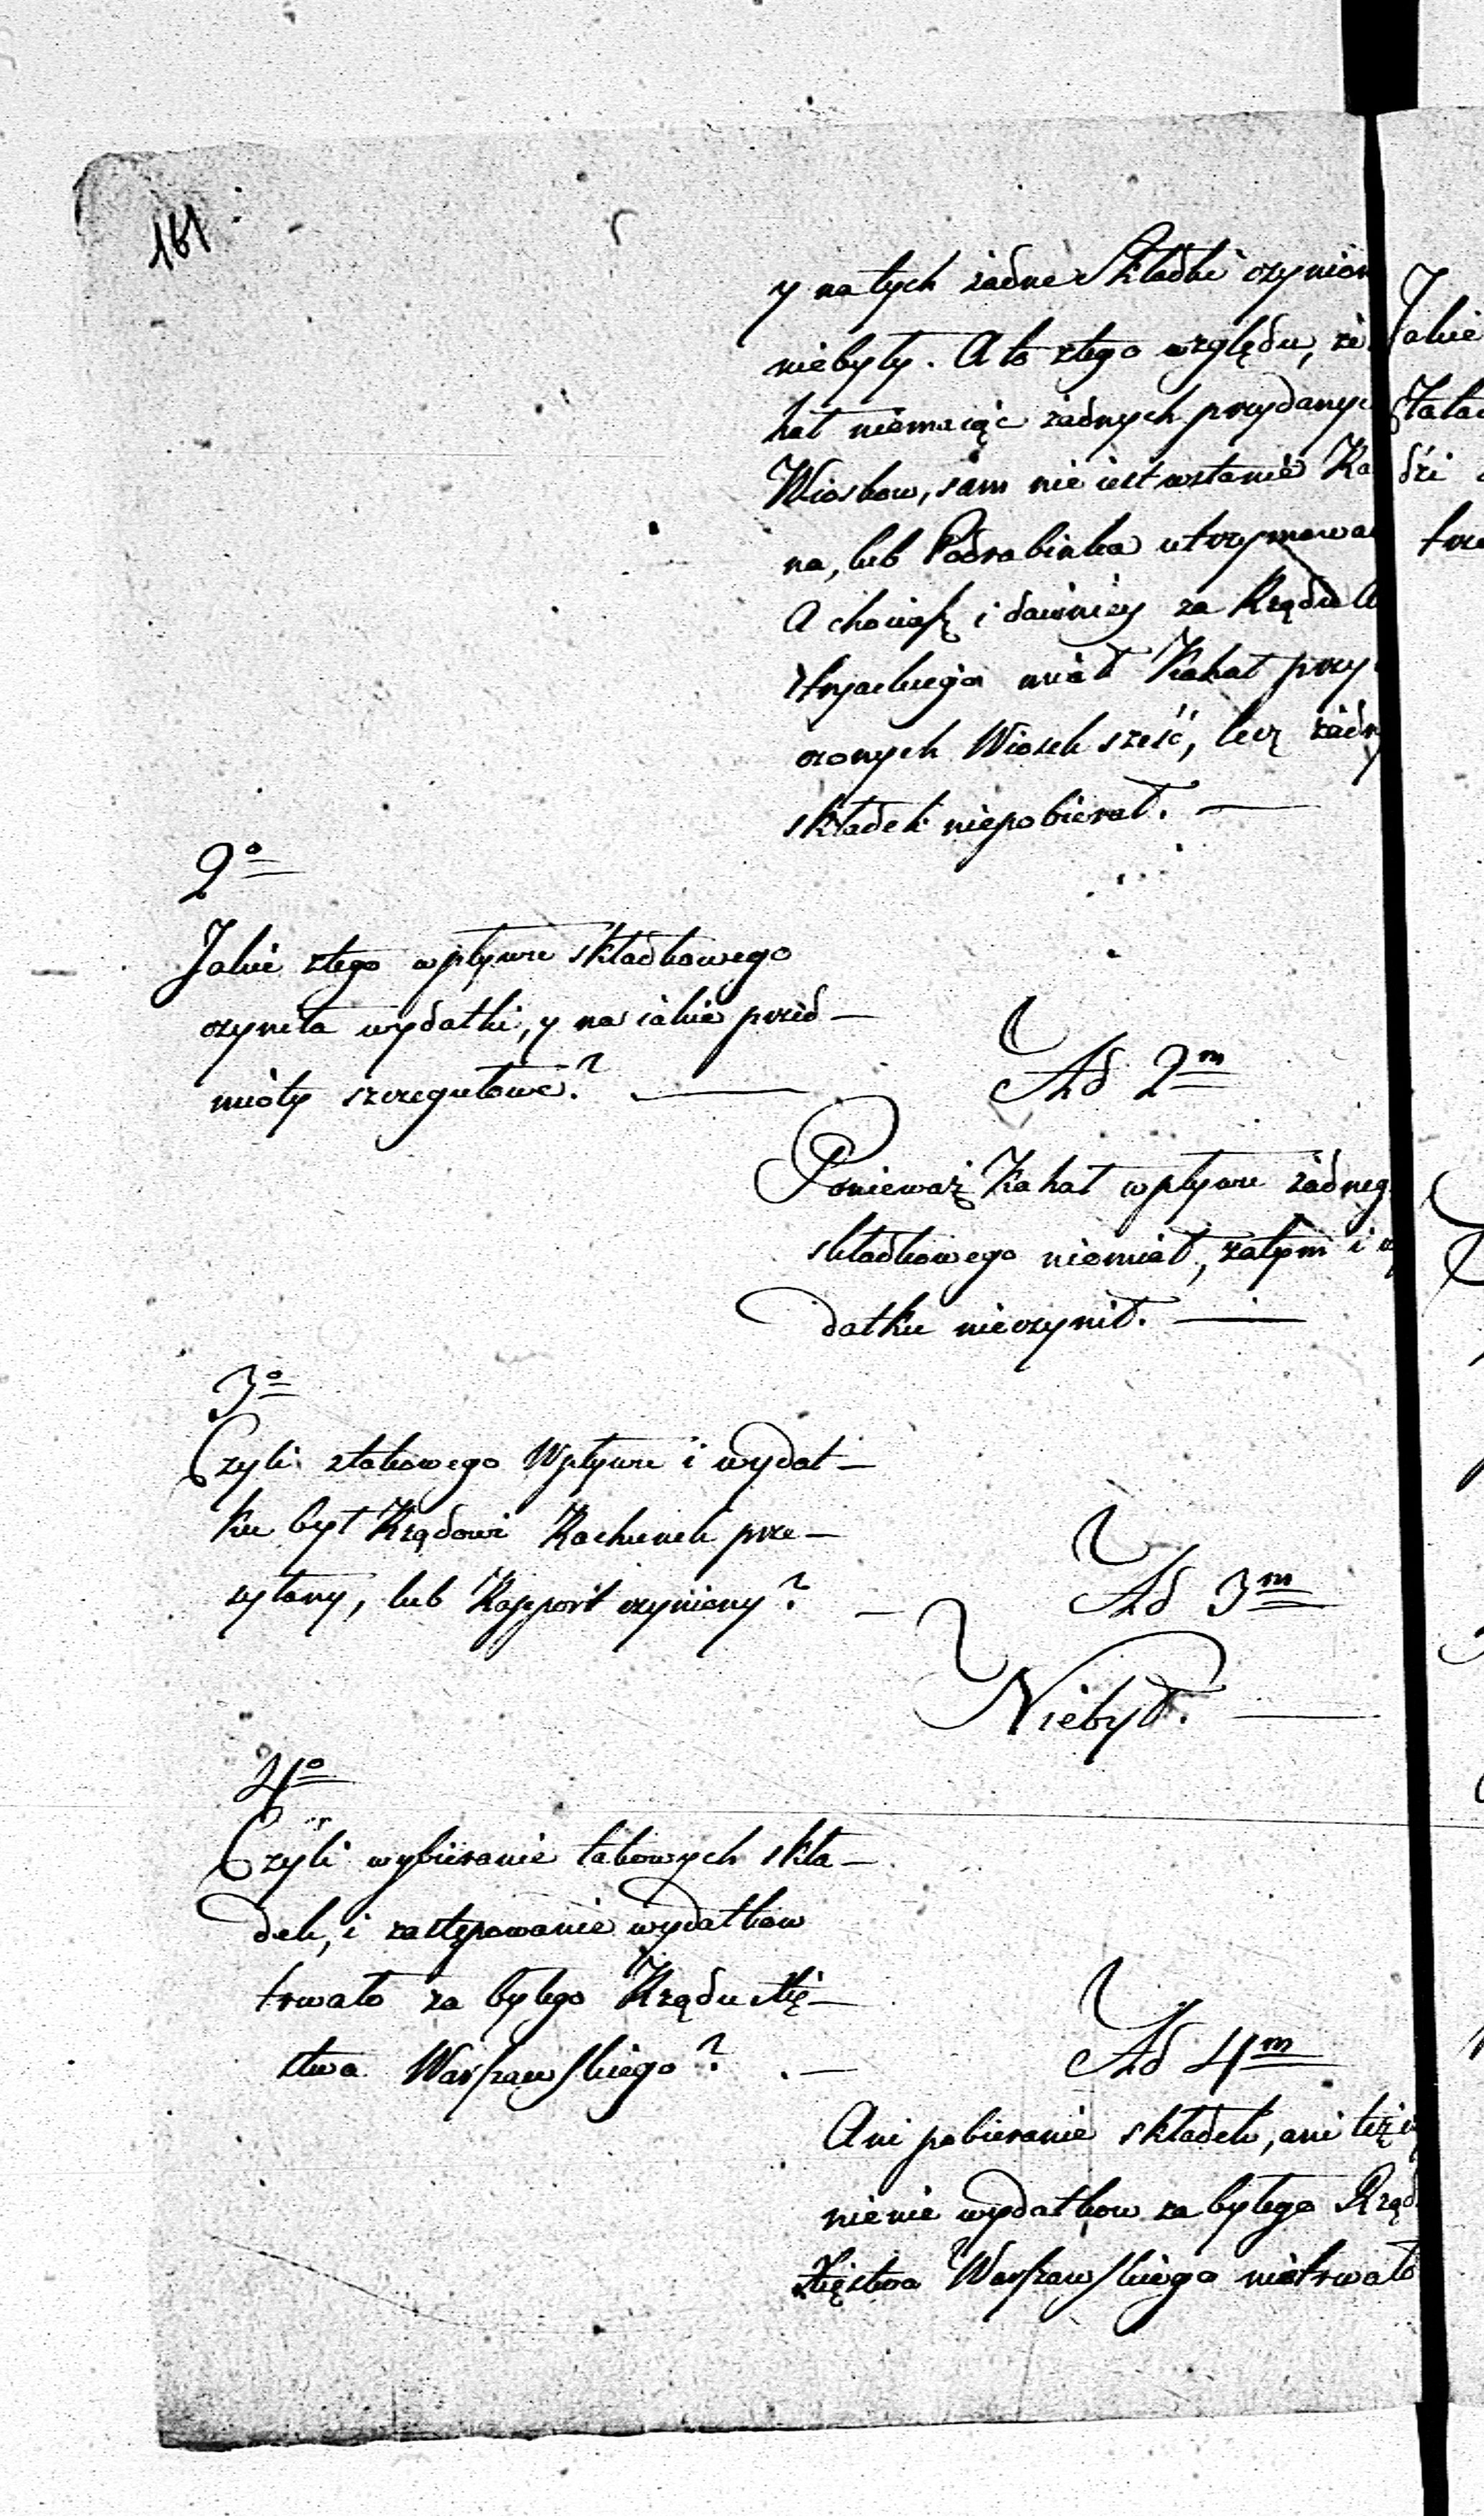 161
y na tych żadne Składki czynion
niebyły. A to ztego względu, że
hał niemaiąc żadnych przydanyc
Wiosków, sam nie iest wstanie Ra
na, lub Podrabinka utrzymowa
A chociasz i dawniey za Rządu A
stryackiego miał Kahał przy
czonych Wiosek sześć, lecz żadn
składek niepobierał. —
2o
Jakie ztego wpływu składkowego
czyniła wydatki, y na iakie przed-
mioty szczegułowe? —
Ad 2m
Ponieważ Kahał wpływu żadneg
składkowego niemiał, zatym i w
datku nieczynił. —
3o
Czyli ztakowego Wpływu i wydat-
ku był Rządowi Rachunek prze-
syłany, lub Rapport czyniony? —
Ad 3m
Niebył. —
4o
Czyli wybieranie takowych skła-
dek, i zastępowanie wydatkow
trwało za byłego Rządu Xię-
stwa Warszawskiego? —
Ad 4m
Ani pobieranie składek, ani też
nienie wydatkow za byłego Rząd
Xięstwa Warszawskiego nietrwało